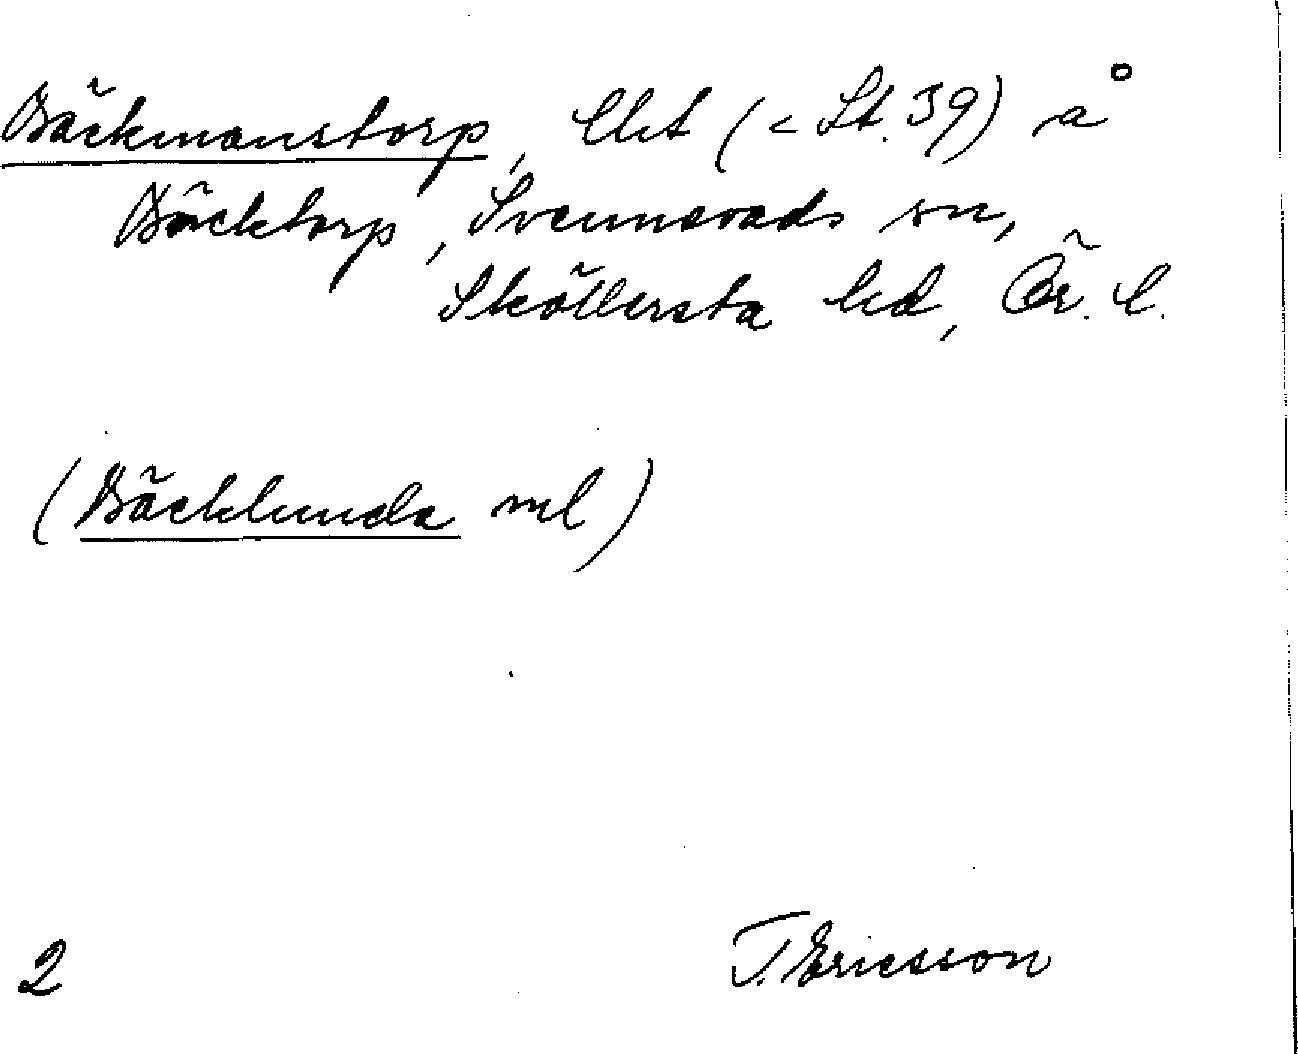 Bäckmanstorp, lht (= Lt. 39) å
Bäcktorp, Svennevads sn,
Sköllersta hd, Ör. l.
(Bäcklunda ml)
2
T. Ericsson